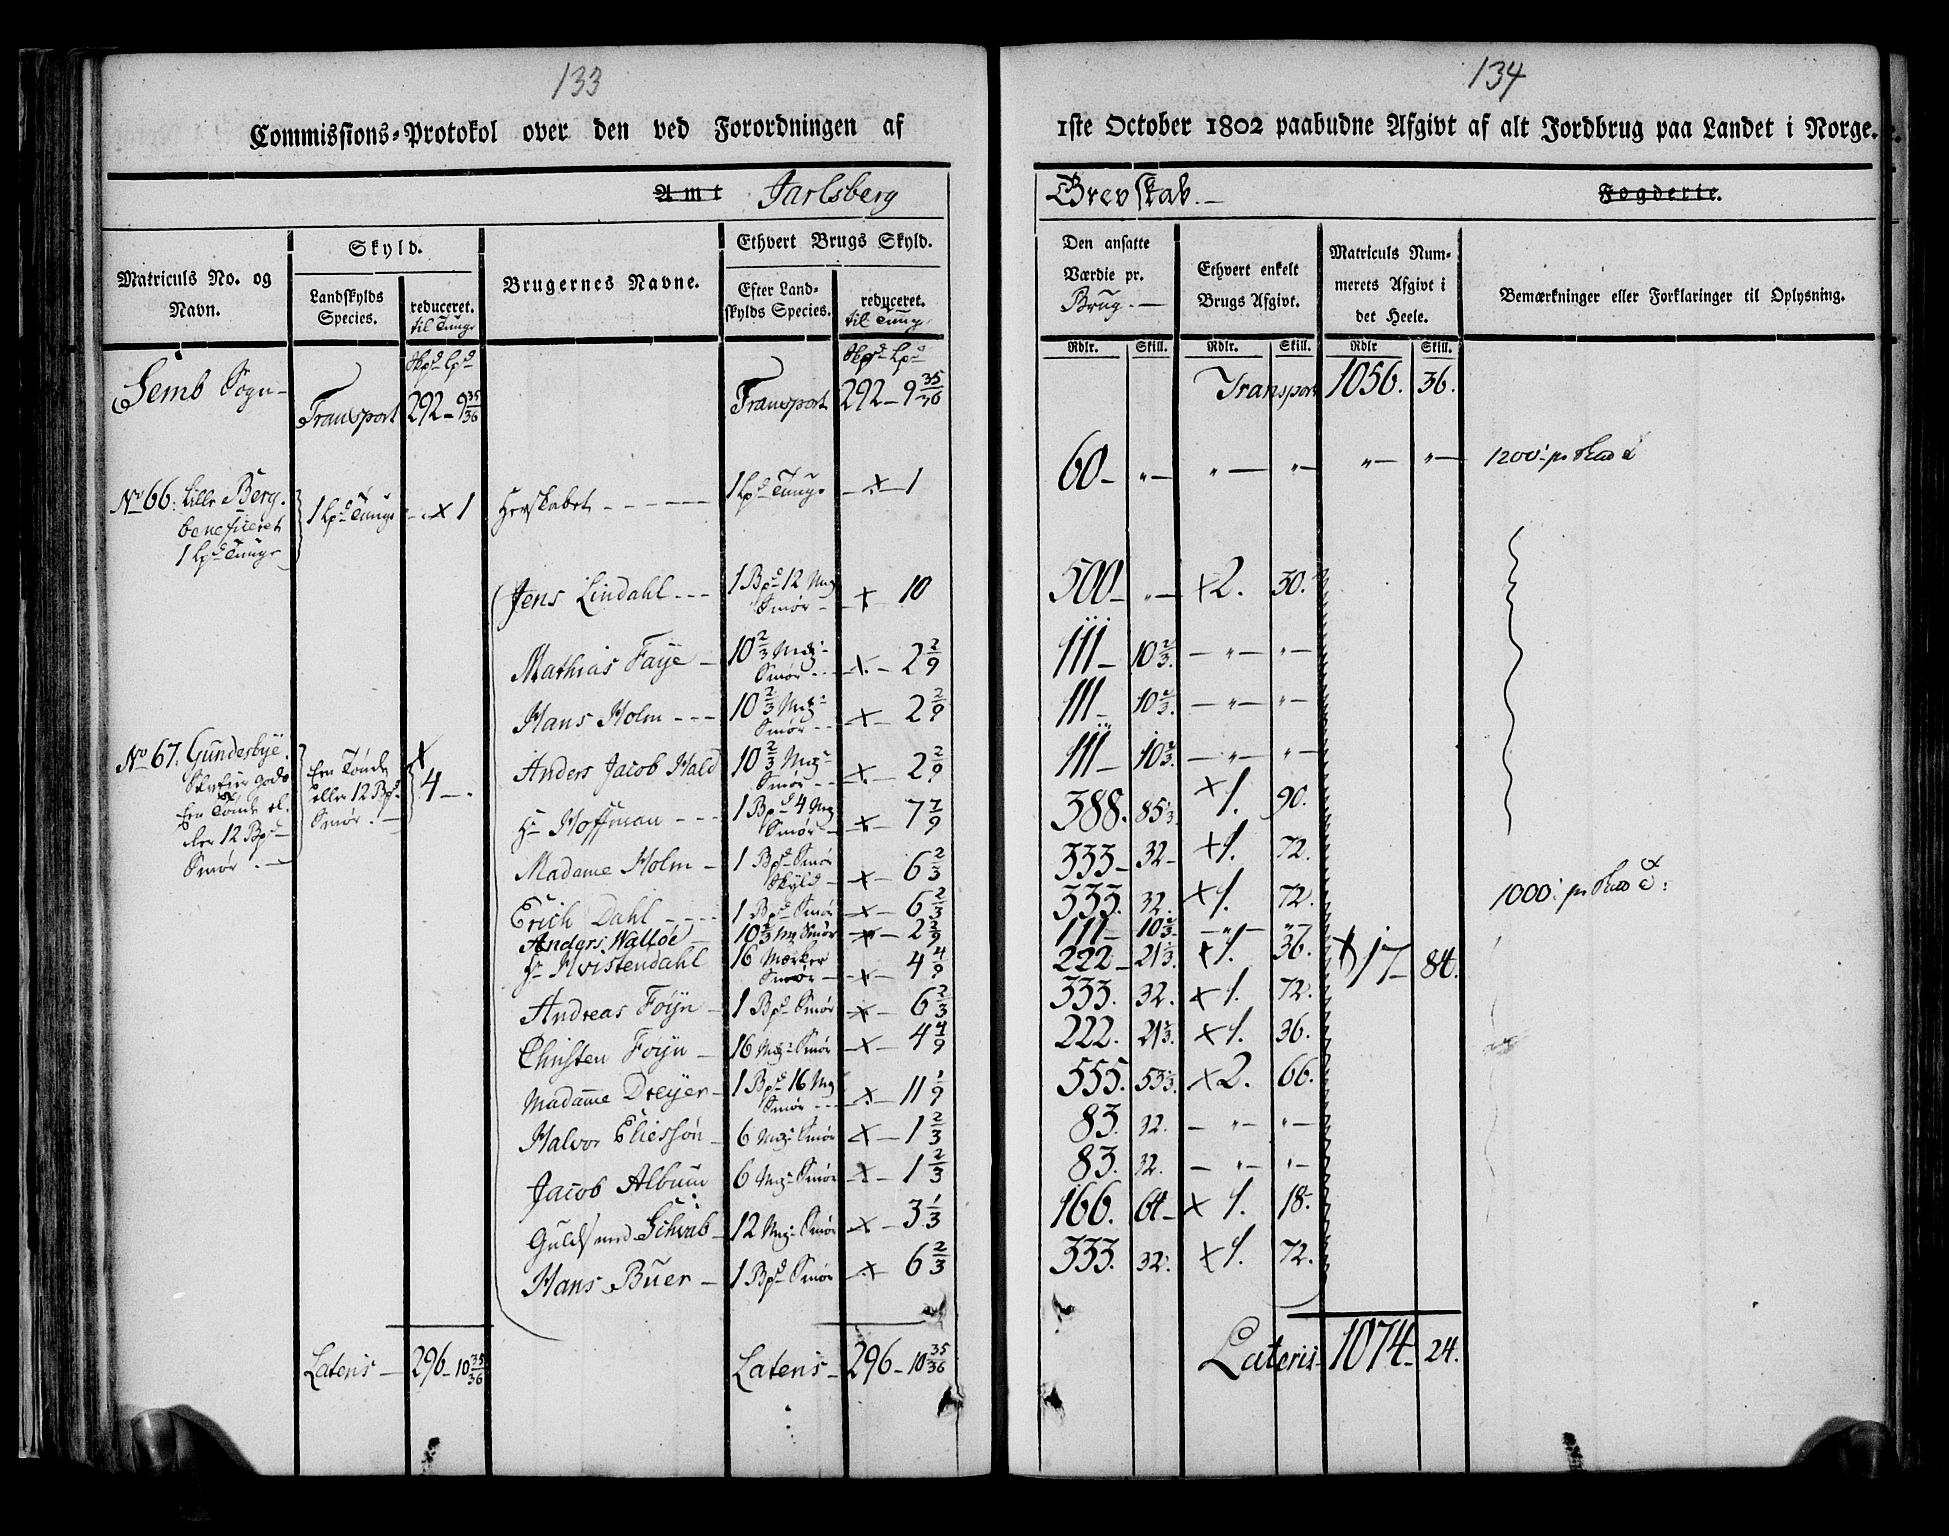 133
Commissions-Protokol over den ved Forordningen af
Amt Jarlsberg
Matriculs No. og Navn.
Skyld.
Landskylds Species.
reduceret. til Tunge
Brugernes Navne.
Ethvert Brugs Skyld.
Efter Landskylds Species.
reduceret. til Tunge
Semb Sogn
Skpd Lpd
Transport 292 - 9 35/36
Skpd Lpd
Transport 292 - 9 35/36
No 66. Lille Berg. beneficeret 1 Lpd Tunge
1 Lpd Tunge - x 1
Herskabet - 1 Lpd Tunge - x - 1
No 67. Gundesbye.
Een Tønde eller 12 Bpd Smør
Een Tønde eller 12 Bpd Smør x 4 -
Jens Lindahl - 1 Bpd 12 Mrk Smør - x - 10
Mathias Faÿe - 10 2/3 Mrk Smør - x - 2 2/9
Hans Holm - 10 2/3 Mrk Smør - x - 2 2/9
Anders Jacob Hald 10 2/3 Mrk Smør - x - 2 2/9
Hr Hoffman - 1 Bpd 4 Mrk Smør - x - 7 7/9
Madame Holm - 1 Bpd Smør Skyld - x - 6 2/3
Erich Dahl - 1 Bpd Smør - x - 6 2/3
Anders Walløe - 10 2/3 Mrk Smør - x - 2 2/9
Hr Hvistendahl 16 Mærker Smør - x - 4 4/9
Andreas Føÿn - 1 Bpd Smør - x - 6 2/3
Christen Føÿn - 16 Mrk Smør - x - 4 4/9
Madame Dreÿer - 1 Bpd 16 Mrk Smør - x - 11 1/9
Halvor Eliessøn - 6 Mrk Smør - x - 1 2/3
Jacob Album 6 Mrk Smør - x - 1 2/3
Guldsmed Schwab - 12 Mrk Smør - x - 3 1/3
Hans Buer - 1 Bpd Smør - x - 6 2/3
Lateris - 296 - 10 35/36
Lateris - 296 - 10 35/36
134
1ste October 1802 paabudne Afgivt af alt Jordbrug paa Landet i Norge.
Grevskab. - Fogderie.
Den ansatte Værdie pr. Brug. -
Ethvert enkelt Brugs Afgivt.
Matriculs Nummerets Afgivt i det Heele.
Bemærkninger eller Forklaringer til Oplysning.
Rdlr. Skill. Rdlr. Skill. Rdlr Skill.
Transport 1056. 36.
60 - " - " - " - " - " - 1200
500 - " - x 2. 30.
111 - 10 2/3. - " - " -
111 - 10 2/3. - " - " -
111 - 10 2/3. - " - " -
388. 85 1/3. x 1. 90.
333 - 32 - x 1. 72.
333. 32. x 1. 72. 1000
111 - 10 2/3. - " - " -
222 - 21 1/3. x 1. 36. x 17 - 84.
333. 32. x 1. 72.
222. 21 1/3. x 1. 36.
555. 53 1/3. x 2. 66.
83. 32. - " - " -
83. 32. - " - " -
166. 64 - x 1. 18.
333. 32. x 1. 72.
Lateris - 1074 - 24.